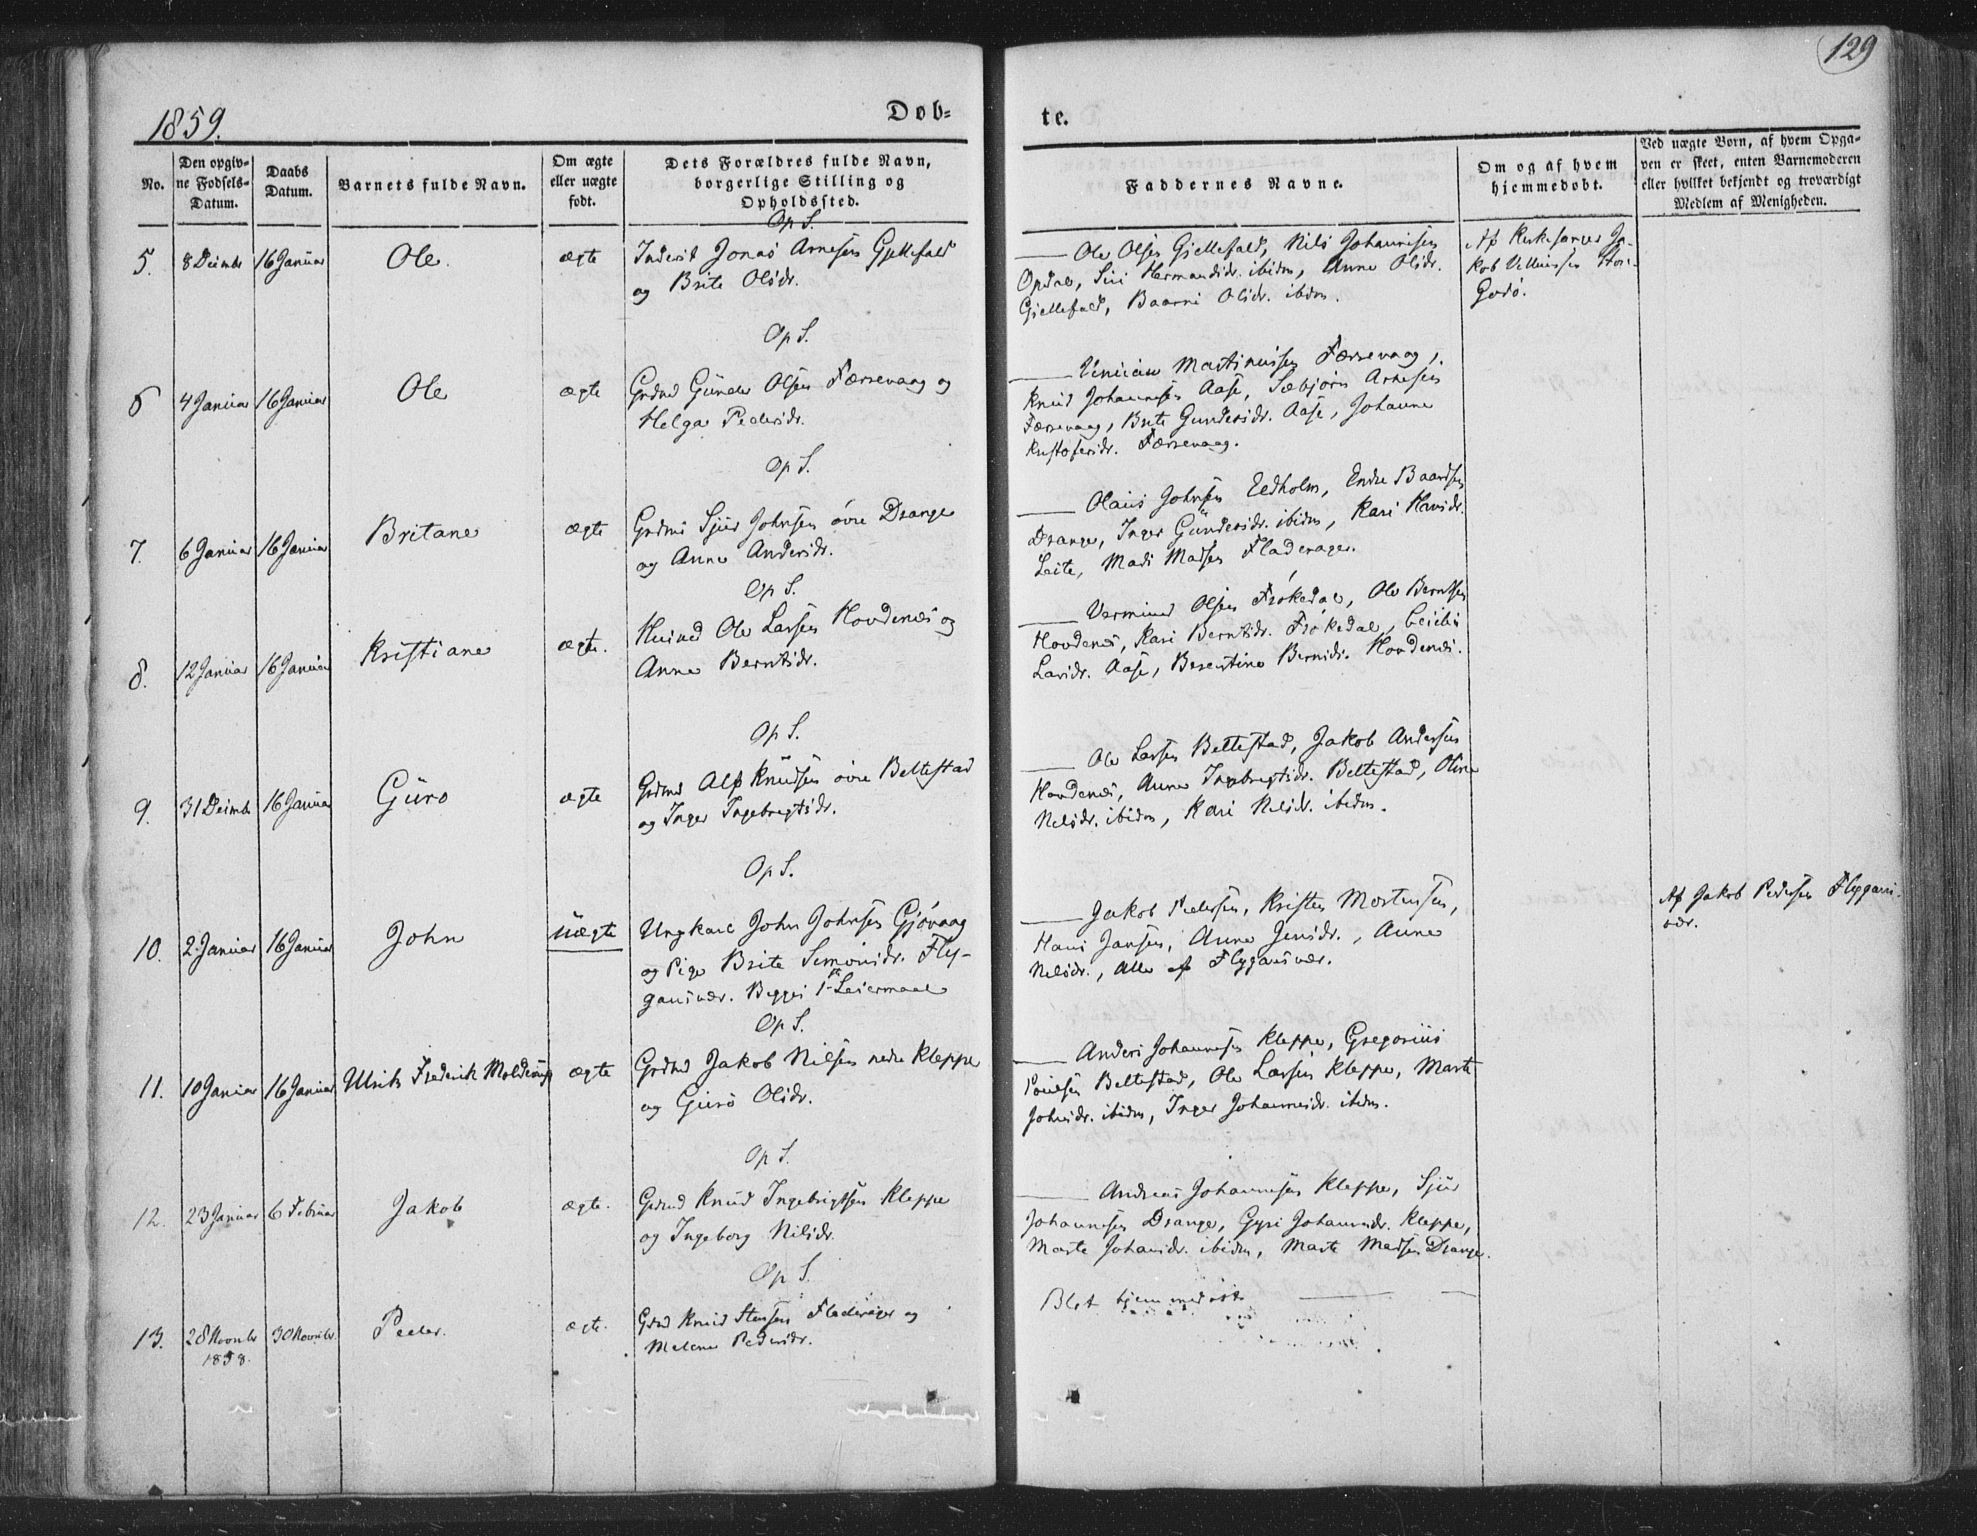 129
1859.
Døb=
te.
No.
Den opgiv=
ne Fødsels=
Datum.
Daabs
Datum.
Barnets fulde Navn.
Om ægte
eller uægte
født.
Dets Forældres fulde Navn,
borgerlige Stilling og
Opholdssted.
Faddernes Navne.
Om og af hvem
hjemmedøbt.
Ved uægte Børn, af hvem Opga=
ven er skeet, enten Barnemoderen
eller hvilket bekjendt og troværdigt
Medlem af Menigheden.
Op S.
5. 8 Decmbr 16 Januar Ole. ægte Jonas Arnesen Gjellefald
og Brite Olsdr.
Ole Olsen Gjellefald, Nils Johannesen
Opdal, Siri Hermandsdr. ibidm, Anne Olsdr.
Gjellefald, Baarni Olsdr. ibidm.
Af Kirkesanger Ja-
kob Villumsen Stor-
Godø.
Op S.
6 4 Januar 16 Januar Ole ægte Grdmd Gunder Olsen Færsevaag og
Helga Pedersdr.
Martinusen Færsevaag,
Knud Johannesen Aase, Sæbjørn Arnesen
Færsevaag, Brite Gundersdr. Aase, Johanne
Kristofersdr. Færsevaag.
Op S.
7. 6 Januar 16 Januar Britane ægte Grdmd Sjur Johnsen øvre Drange
og Anne Andersdr.
Olaus Johnsen Eedholm, Endre Baardsen
Drange, Inger Gundersdr. ibidm, Kari Hansdr.
Leite, Mads Madsen Fladerager.
Op S.
8. 12 Januar 16 Januar Kristiane ægte. Husmd Ole Larsen Hovdenes og
Anne Berntsdr.
Vermund Olsen Frøkedal, Ole Berntsen
Hovdenes, Kari Berntsdr. Frøkedal,
Larsdr. Aase, Berentine Berntsdr. Hovdenes.
Op S.
9. 31 Decmbr 16 Januar Guro ægte Grdmd Alf Knudsen øvre Beltestad
og Inger Ingebregtsdr.
Ole Larsen Beltestad, Jakob Andersen
Hovdenes, Anne Ingebregtsdr. Beltestad, Oline
Nelsdr. ibidm, Kari Nelsdr. ibidm.
Op S.
10. 2 Januar 16 Januar John Uægte Ungkarl John Johnsen Gjøvaag
og Pige Brite Simonsdr. Fly-
gansvær. Begges 1ste Leiermaal
Jakob Pedersen, Kristen Mortensen,
Hans Jansen, Anne Jensdr., Anne
Nelsdr., Alle af Flygansvær.
Af Jakob Pedersen Flygans-
vær.
Op S.
11. 10 Januar 16 Januar Ulrik Frederik Molderup ægte Grdmd Jakob Nilsen nedre Kleppe
og Guro Olsdr.
Anders Johannesen Kleppe, Gregorius
Poulsen Beltestad, Ole Larsen Kleppe, Marte
Johnsdr. ibidm, Inger Johannesdr. ibidm.
Op S.
12. 23 Januar 6 Februar Jakob ægte. Grdmd Knud Ingebrigtsen Kleppe
og Ingeborg Nilsdr.
Andreas Johannesen Kleppe, Sjur
Johannesen Drange, Gyri Johannesdr. Kleppe,
Marte Johansdr. ibidm, Marte Madsen Drange.
Op S.
13. 28 Novmbr 30 Novmbr. Peder. ægte. Grdmd Knud Stensen Fladerager og
1858.
Malene Pedersdr.
Blot hjemmedøbt